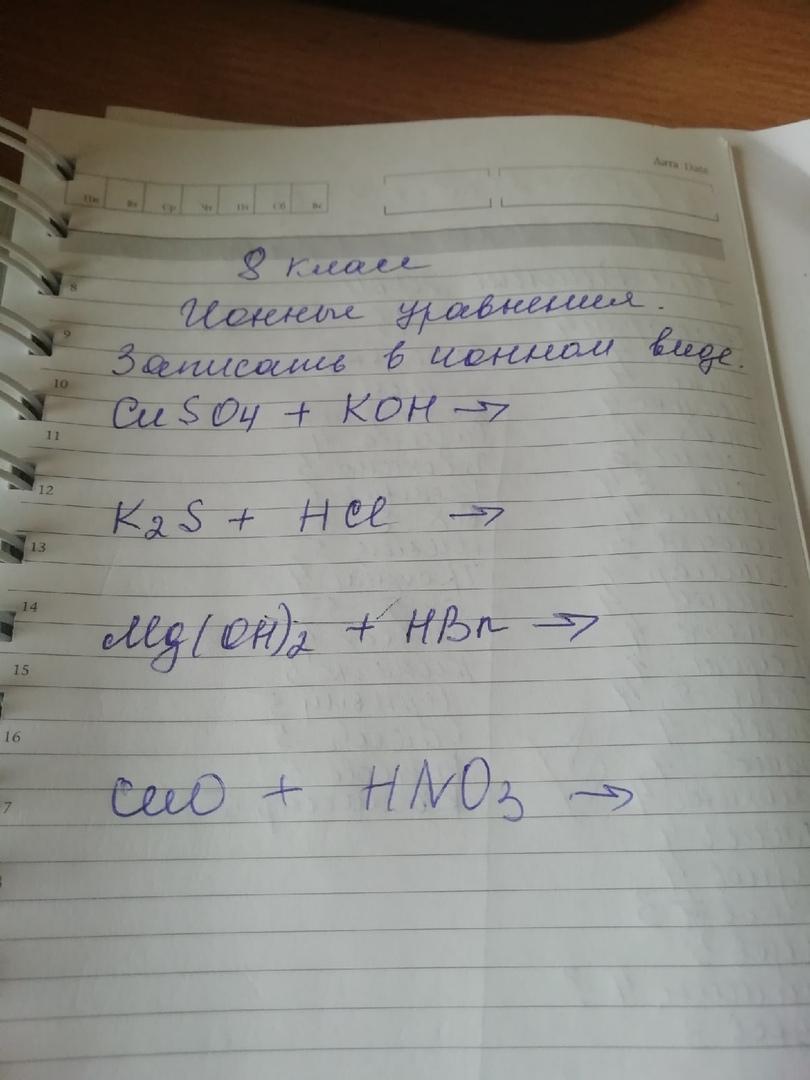 Дата Date
Пн Вт Ср Чт Пт Сб Вс
8 класс
8
Ионные уравнения.
9
Записать в ионном виде.
10
CuSO4 + KOH →
11
12
K2S + HCl →
13
14
Mg(OH)2 + HBr →
15
16
CuO + HNO3 →
7